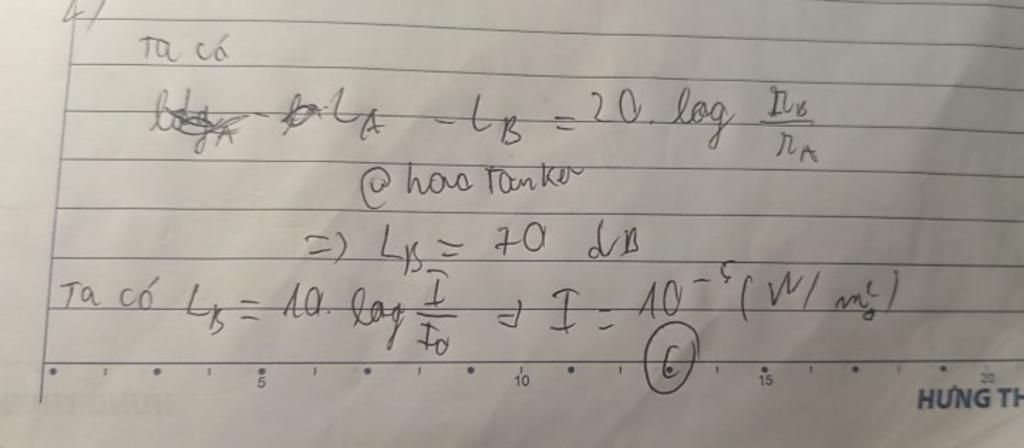 4/
Ta có
L_A - L_B = 20. log r_B/r_A
@ hao Tanker
=> L_B = 70 dB
Ta có L_B = 10. log I/I_0 => I = 10^-5 (W/m^2)
C
5 10 15 20
HƯNG TH